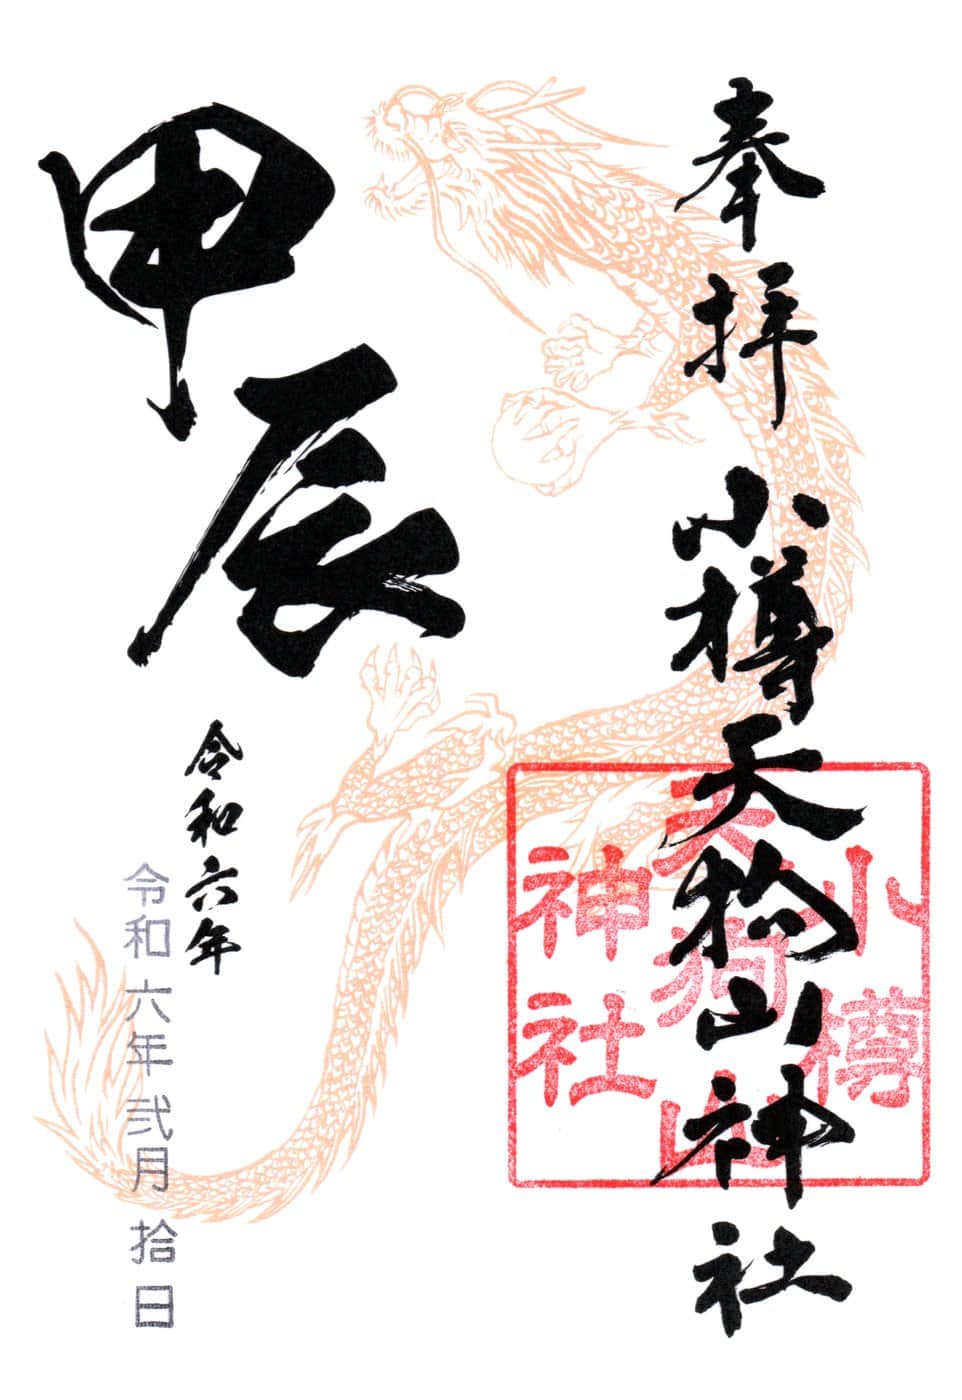 奉拝
小樽天狗山神社
小樽
天狗山
神社
甲辰
令和六年
令和六年弐月拾日